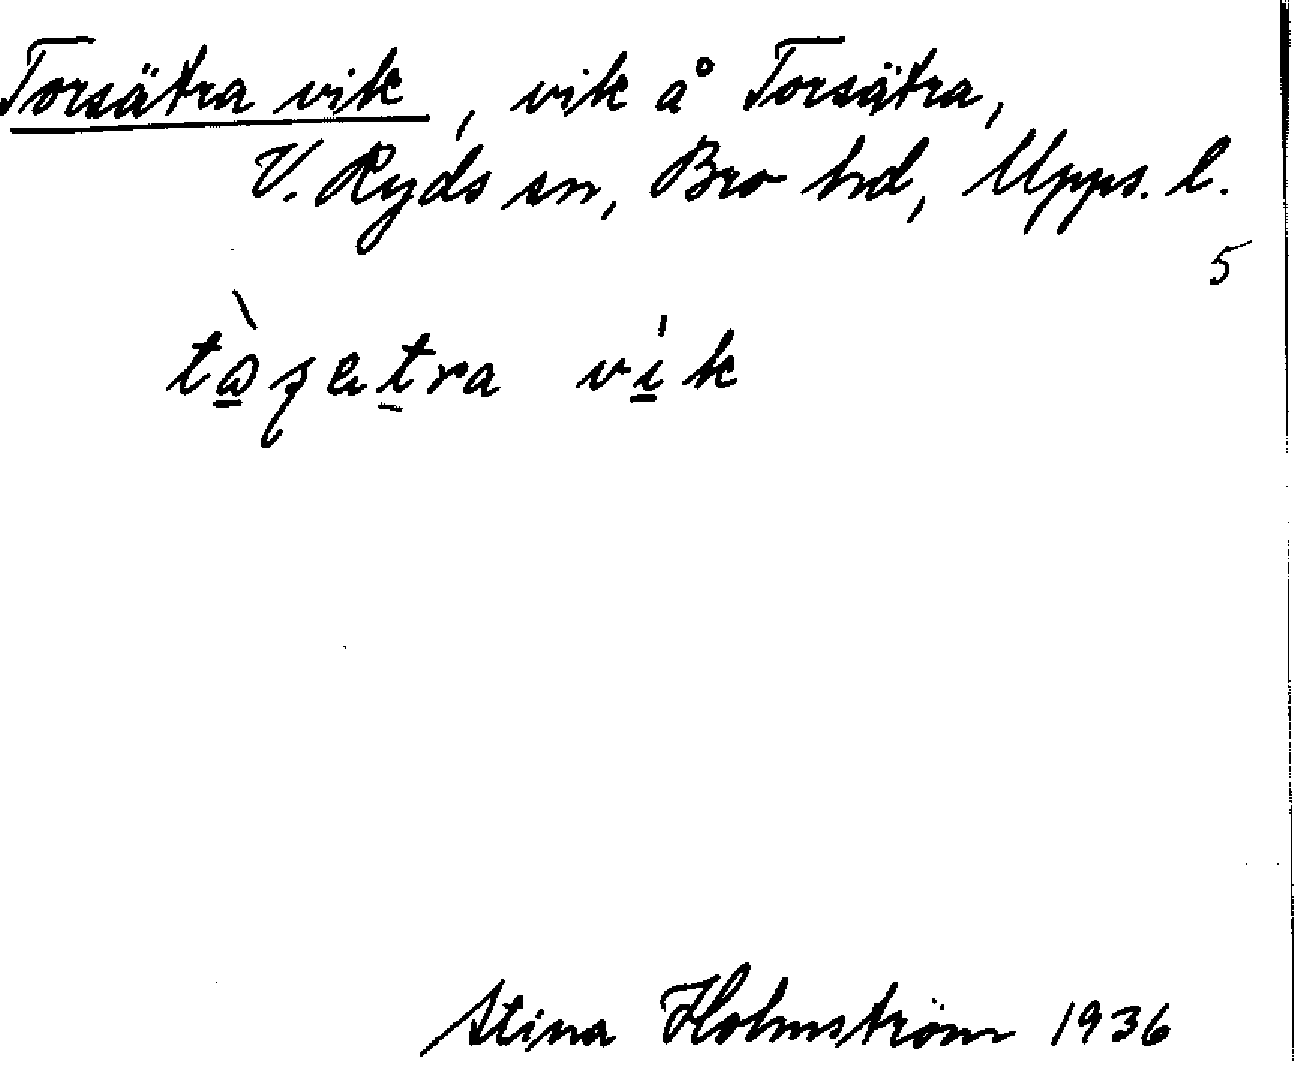 Torsätra vik, vik å Torsätra,
V. Ryds sn, Bro hd, Upps. l.
5
vik
Stina Holmström 1936